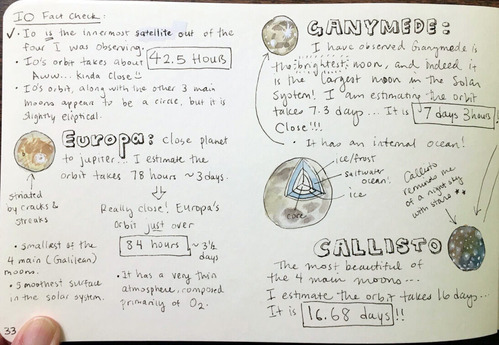 IO Fact Check:
✓ • Io is the innermost satellite out of the
four I was observing.
• IO's orbit takes about 42.5 Hours
Aww... kinda close
• IO's orbit, along with the other 3 main
moons appear to be a circle, but it is
slightly elliptical.
Europa: close planet
to jupiter... I estimate the
orbit takes 78 hours ~ 3 days.
Really close! Europa's
orbit just over
84 hours ~ 3½
days
striated
by cracks &
streaks
• smallest of the
4 main (Galilean)
moons.
• Smoothest surface
in the solar system.
• It has a very thin
atmosphere, composed
primarily of O₂.
33
GANYMEDE:
I have observed Ganymede is
the brightest moon, and indeed it
is the largest moon in the Solar
System! I am estimating the orbit
takes 7.3 days... It is ~7 days 3hours!!
Close!!!
• It has an internal ocean!
ice/frost
saltwater
ocean!
ice
core
Callisto
reminds me
of a night sky
with stars **
CALLISTO
The most beautiful of
the 4 main moons...
I estimate the orbit takes 16 days...
It is 16.68 days!!